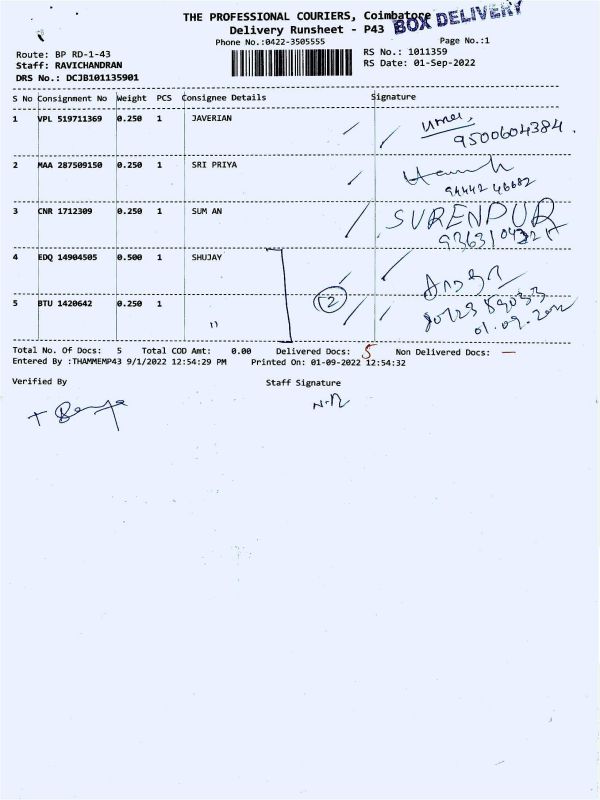 THE PROFESSIONAL COURIERS, Coimbatore
BOX DELIVERY
Delivery Runsheet - P43
Phone No.:0422-3505555
Page No.:1
Route: BP RD-1-43
RS No.: 1011359
Staff: RAVICHANDRAN
RS Date: 01-Sep-2022
DRS No.: DCJB101135901
S No Consignment No Weight PCS Consignee Details Signature
1 VPL 519711369 0.250 1 JAVERIAN
9500604384.
2 MAA 287509150 0.250 1 SRI PRIYA
94442 46682
3 CNR 1712309 0.250 1 SUM AN SURENDUR
4 EDQ 14904505 0.500 1 SHUJAY
2
5 BTU 1420642 0.250 1 "
01.09.2022
Total No. Of Docs: 5 Total COD Amt: 0.00 Delivered Docs: 5 Non Delivered Docs: —
Entered By :THAMMEMP43 9/1/2022 12:54:29 PM Printed On: 01-09-2022 12:54:32
Verified By Staff Signature